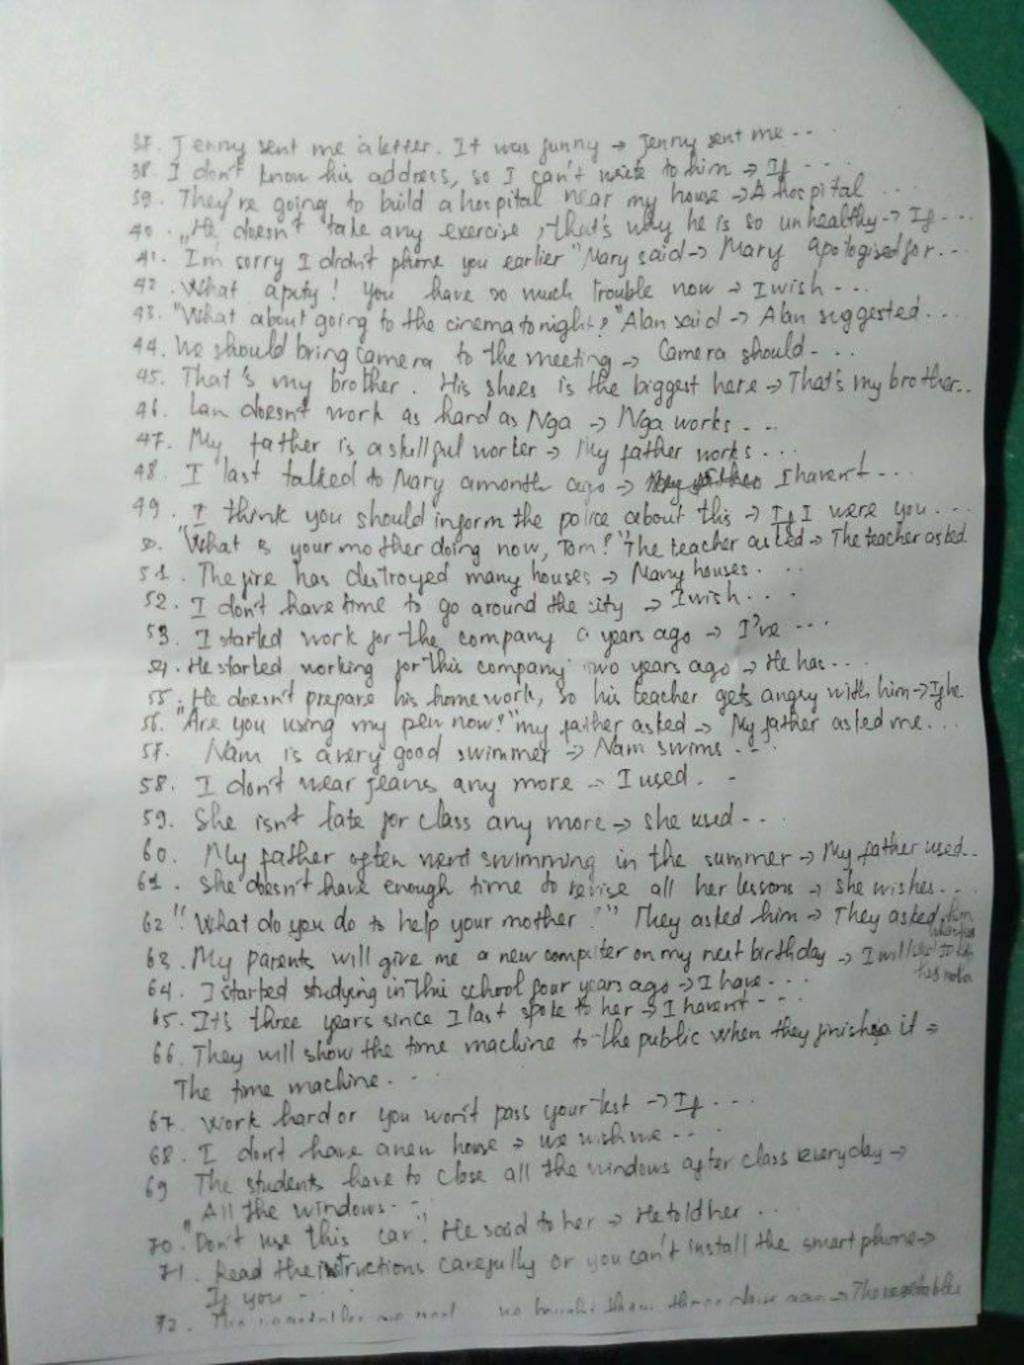 37. Jenny sent me a letter. It was funny → Jenny sent me ...
38. I don't know his address, so I can't write to him → If ...
39. They're going to build a hospital near my house → A hospital ...
40. „He doesn't take any exercise, that's why he is so unhealthy → If ...
41. I'm sorry I didn't phone you earlier" Mary said → Mary apologised for ...
42. What a pity! You have so much trouble now → I wish ...
43. "What about going to the cinema tonight?" Alan said → Alan suggested ....
44. We should bring camera to the meeting → Camera should ...
45. That's my brother. His shoes is the biggest here → That's my brother..
46. Lan doesn't work as hard as Nga → Nga works ...
47. My father is a skillful worker → My father works ...
48. I last talked to Mary a month ago → I haven't ...
49. I think you should inform the police about this → If I were you ...
50. "What is your mother doing now, Tom?" The teacher asked → The teacher asked
51. The fire has destroyed many houses → Many houses. ...
52. I don't have time to go around the city → I wish ....
53. I started work for the company a years ago → I've ...
54. He started working for this company two years ago → He has ...
55. He doesn't prepare his homework, so his teacher gets angry with him → If he
56. "Are you using my pen now?" my father asked → My father asked me ...
57. Nam is a very good swimmer → Nam swims ...
58. I don't wear jeans any more → I used. -
59. She isn't late for class any more → she used ...
60. My father often went swimming in the summer → My father used..
61. She doesn't have enough time to revise all her lessons → she wishes ...
62 "What do you do to help your mother?" They asked him → They asked him
63. My parents will give me a new computer on my next birthday → I will
64. I started studying in this school four years ago → I have ...
65. It's three years since I last spoke to her → I haven't ...
66. They will show the time machine to the public when they finished it →
The time machine. ..
67. Work hard or you won't pass your test → If ...
68. I don't have a new house → we wish we ...
69 The students have to close all the windows after class everyday →
All the windows ..
70. "Don't use this car". He said to her → He told her ....
71. Read the instructions carefully or you can't install the smart phone →
If you ..
72. The → The vegetables